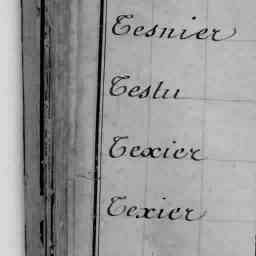 Tesnier
Teslu
Texier
Texier